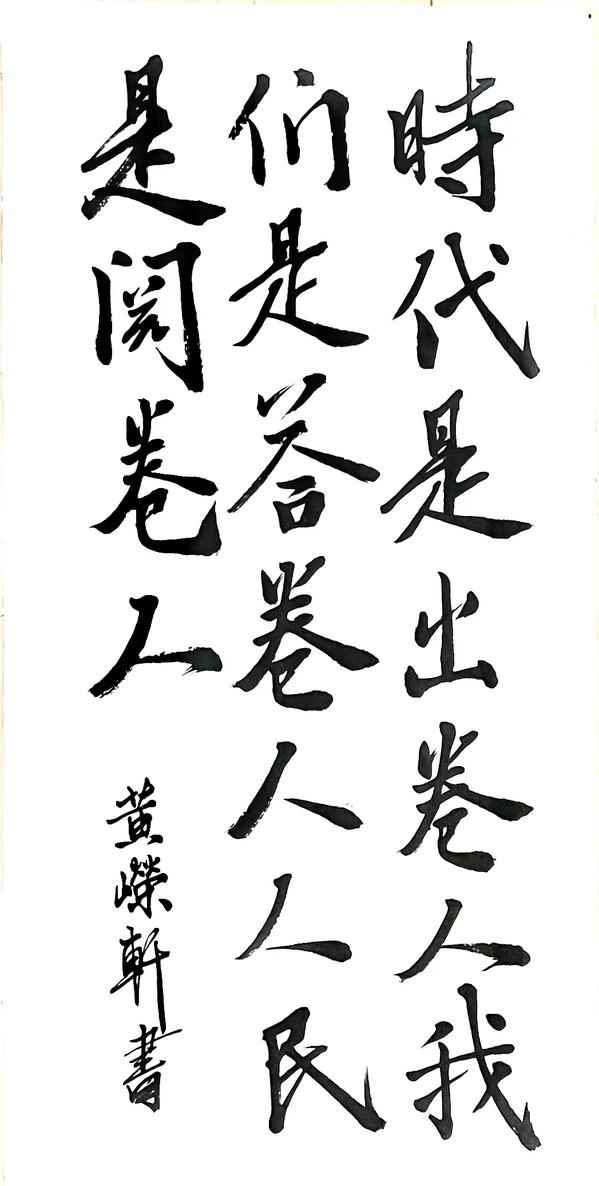 時代是出卷人我
们是答卷人人民
是阅卷人
黄嶸軒書